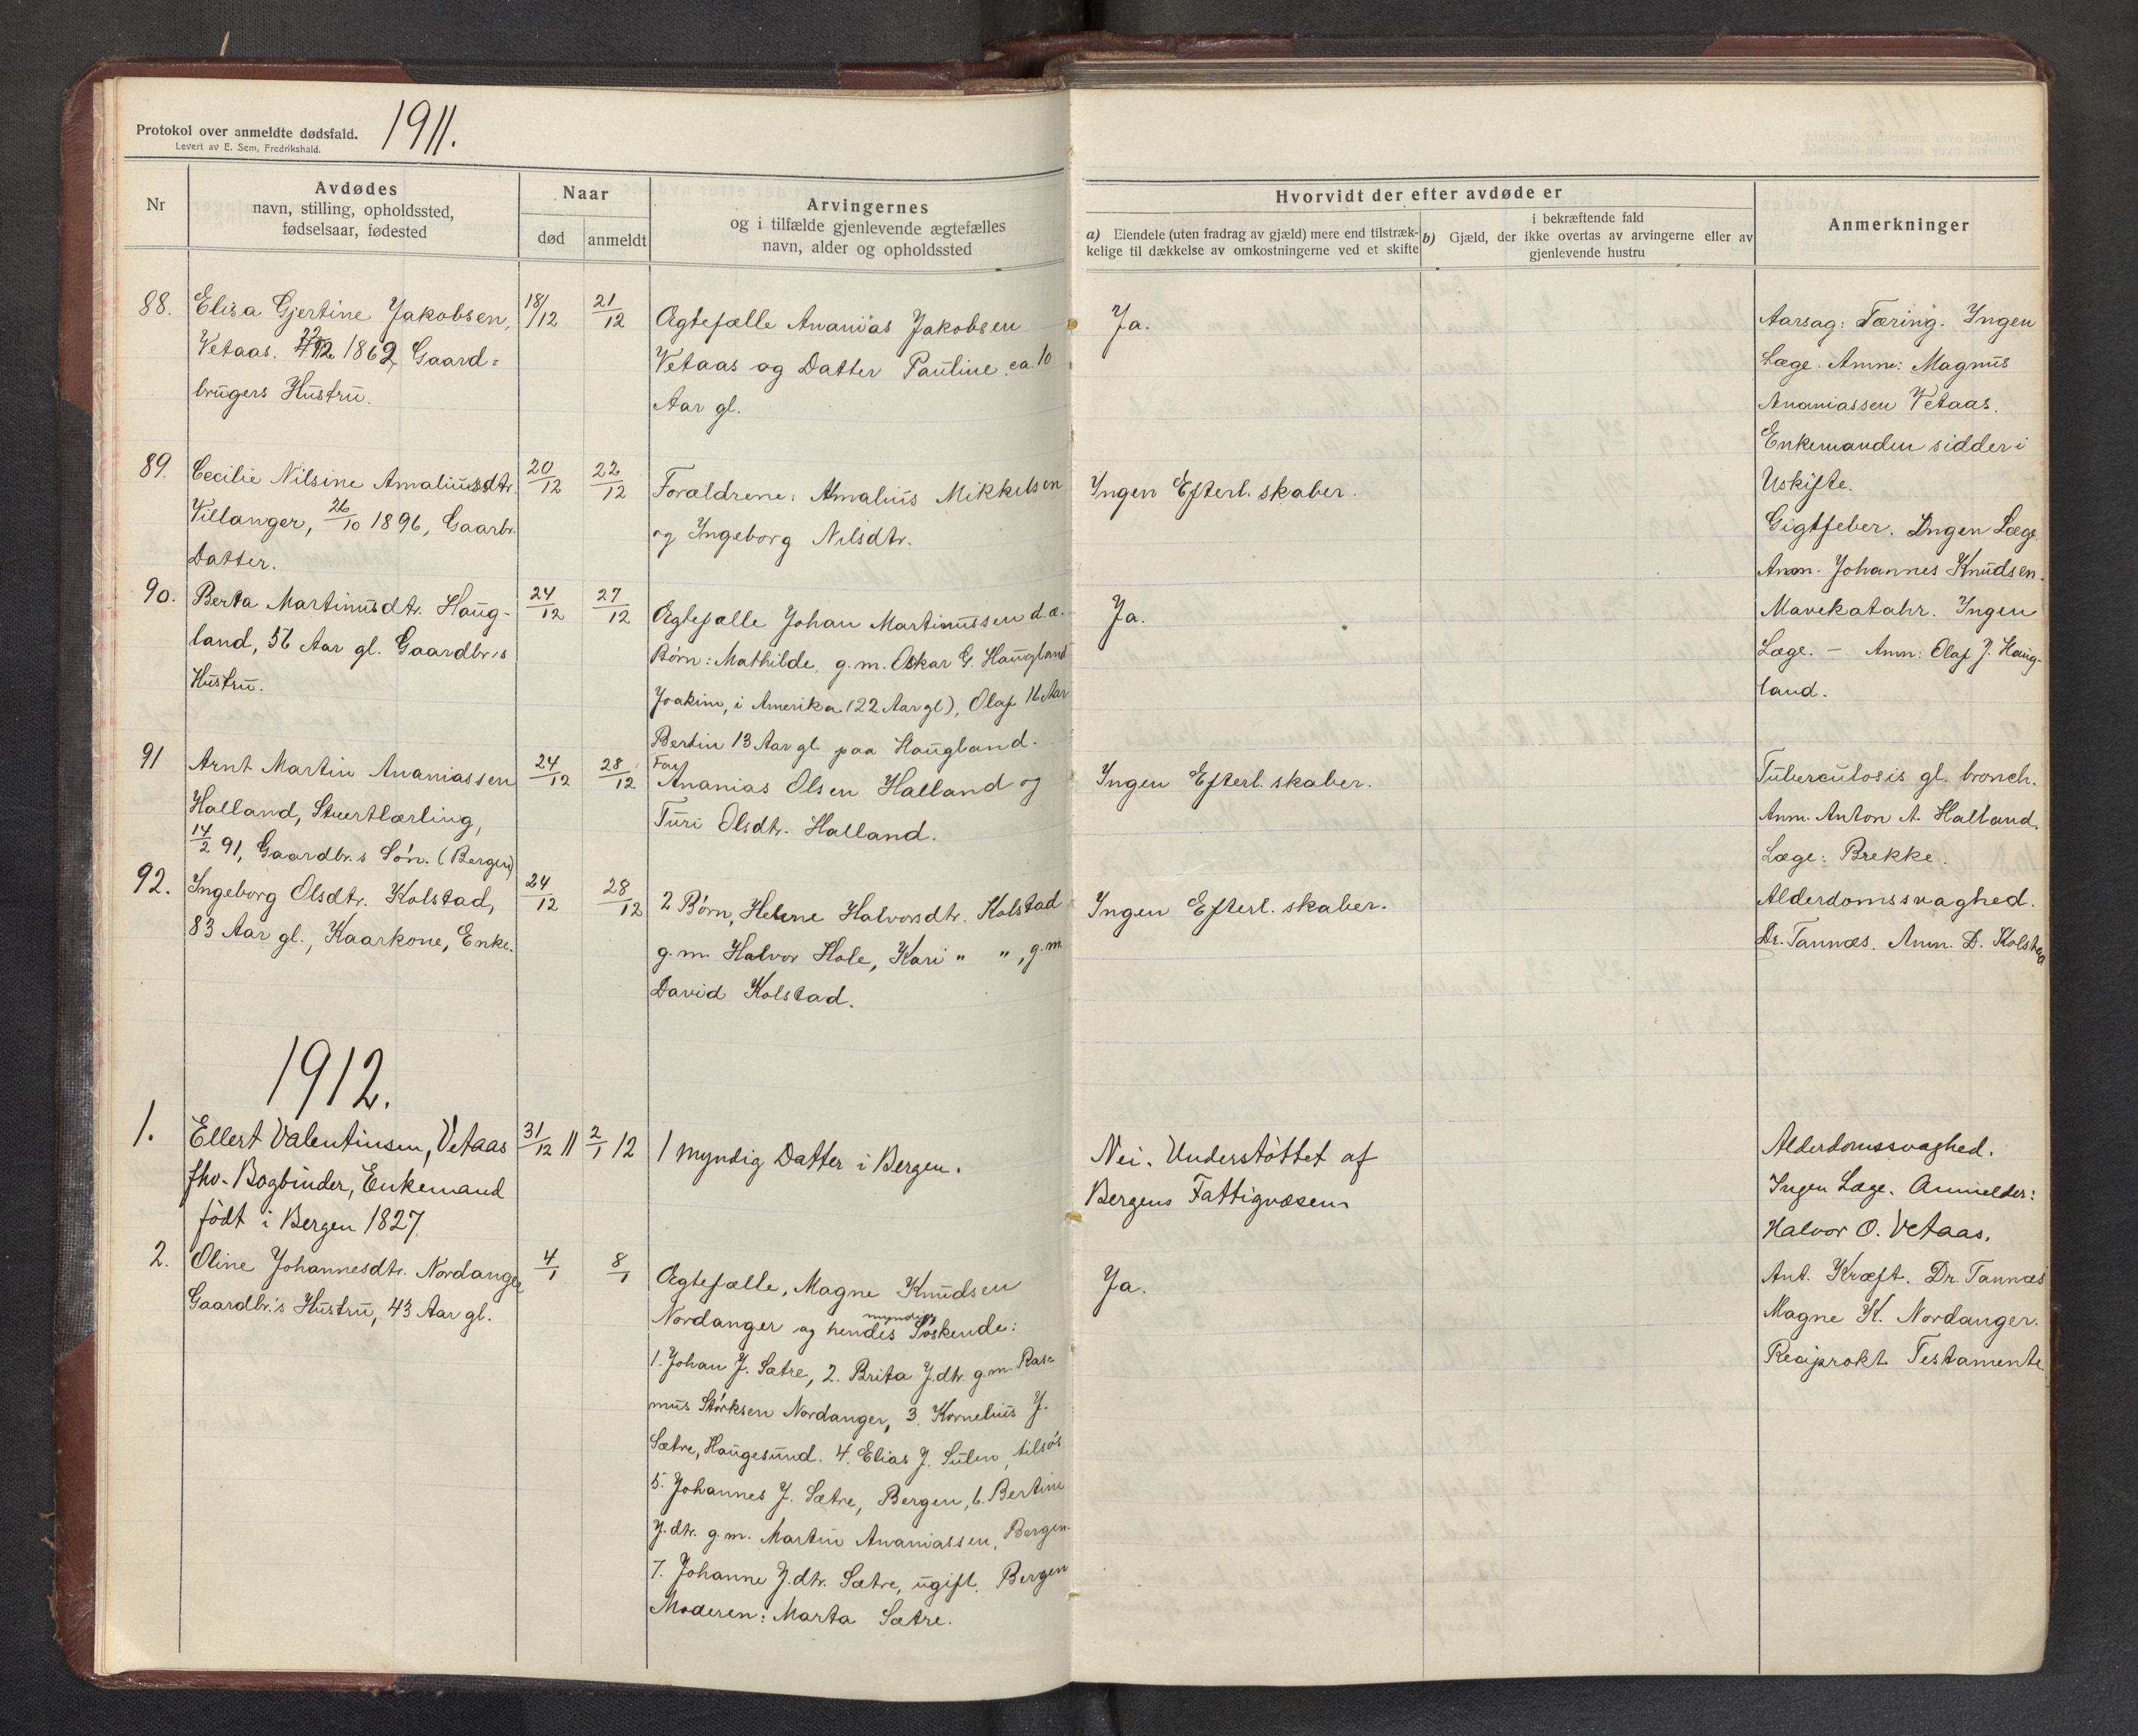 Protokol over anmeldte dødsfald.
Levert av E. Sem, Fredrikshald.
1911.
Nr
Avdødes
navn, stilling, opholdssted,
fødselsaar, fødested
Naar
død
anmeldt
Arvingernes
og i tilfælde gjenlevende ægtefælles
navn, alder og opholdssted
Hvorvidt der efter avdøde er
a) Eiendele (uten fradrag av gjæld) mere end tilstræk-
kelige til dækkelse av omkostningerne ved et skifte
i bekræftende fald
b) Gjæld, der ikke overtas av arvingerne eller av
gjenlevende hustru
Anmerkninger
88.
Elisa Gjertine Jakobsen,
Vetaas. 1862, Gaard=
brugers Hustru.
18/12
21/12
Ægtefælle Ananias Jakobsen
Vetaas og Datter Pauline ca. 10
Aar gl.
Ja.
Aarsag: Tæring. Ingen
Læge. Anm: Magnus
Ananiassen Vetaas.
Enkemanden sidder i
Uskifte.
89.
Cecilie Nilsine Amaliusdtr.
Villanger, 26/10 1896, Gaarbr.
Datter.
20/12
22/12
Forældrene: Amalius Mikkelsen
og Ingeborg Nilsdtr.
Ingen Efterl. skaber.
Gigtfeber. Ingen Læge.
Anm. Johannes Knudsen.
90.
Berta Martinusdtr. Haug-
land, 56 Aar gl. Gaardbr.s
Hustru.
24/12
27/12
Ægtefælle Johan Martinussen d.æ.
Børn: Mathilde, g.m. Oskar G. Haugland
Joakim, i Amerika (22 Aar gl), Olaf 16 Aar
Bertin 13 Aar gl. paa Haugland.
Ja.
Mavekatahr. Ingen
Læge. – Anm: Olaf J. Haug-
land.
91
Arnt Martin Ananiassen
Halland, Stuertlærling,
14/2 91, Gaardbr.s Søn. (Bergen)
24/12
28/12
Far
Ananias Olsen Halland og
Turi Olsdtr. Halland.
Ingen Efterl. skaber.
Tuberculosis gl. bronch.
Anm. Anton A. Halland.
Læge: Brekke.
92.
Ingeborg Olsdtr. Kolstad,
83 Aar gl., Kaarkone, Enke.
24/12
28/12
2 Børn, Helene Halvorsdtr. Kolstad
g.m. Halvor Hole, Kari " ", g.m
David Kolstad.
Ingen Efterl. skaber.
Alderdomssvaghed.
Dr. Tannæs. Anm. D. Kolstad
1912.
1.
Ellert Valentinsen, Vetaas
fhv. Bogbinder, Enkemand
født i Bergen 1827.
31/12 11
2/1 12
1 myndig Datter i Bergen.
Nei. Understøttet af
Bergens Fattigvæsen
Alderdomssvaghed.
Ingen Læge. Anmelder:
Halvor O. Vetaas.
2.
Oline Johannesdtr. Nordanger
Gaardbr.'s Hustru, 43 Aar gl.
4/1
8/1
Ægtefælle, Magne Knudsen
Nordanger og hendes myndige Søskende:
1. Johan J. Sætre, 2. Brita J.dtr. g.m. Ras=
mus Størksen Nordanger, 3. Kornelius J.
Sætre, Haugesund. 4. Elias J. Sulen, tilsøs
5. Johannes J. Sætre, Bergen, 6. Bertine
J.dtr. g.m. Martin Ananiassen, Bergen.
7. Johanne J.dtr. Sætre, ugift. Bergen
Moderen: Marta Sætre.
Ja.
Ant. Kræft. Dr. Tannæs
Magne K. Nordanger.
Reciprokt Testamente.